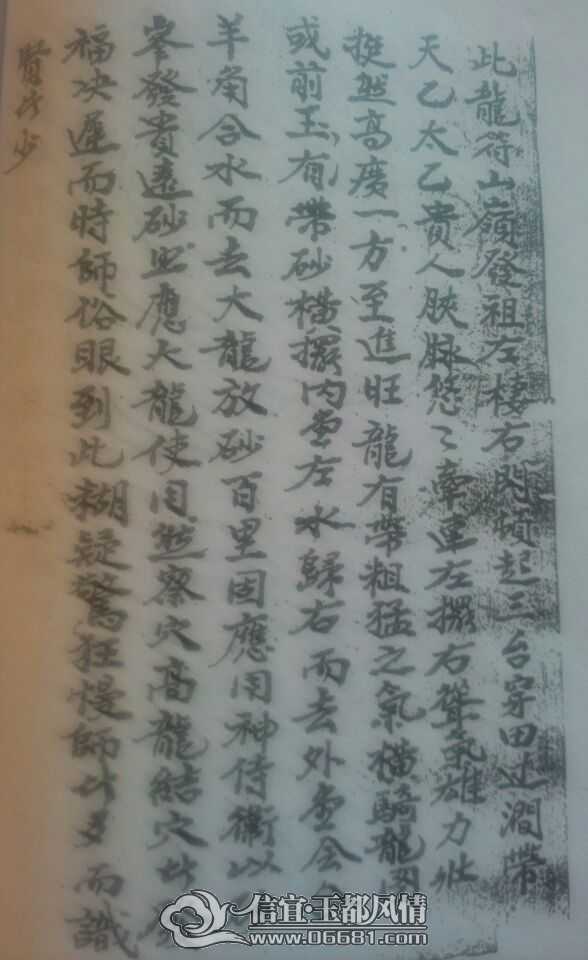 此龍符山嶺發祖左樓右閃頓起三台穿田过澗帶
天乙太乙貴人脥脉悠〻牽連左擺右聳氣雄力壯
挺然高度一方至進旺龍有帶粗猛之氣橫騎龍
或前玉有帶砂橫擺内堂左水歸右而去外堂会
羊角合水而去大龍放砂百里因應用神侍衛以
峯發貴遠砂照應大龍使用然察穴高龍結穴
福决遲而時師俗眼到此糊疑驚狂慢師而識
賢
信宜·玉都风情
www.06681.com